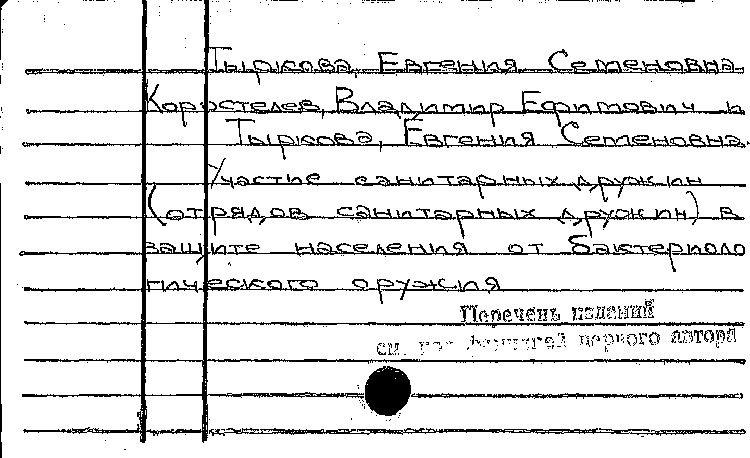 Тыркова, Евгения Семеновна.
Коростелев, Владимир Ефимович и
Тыркова, Евгения Семеновна.
Участие санитарных дружин
(отрядов санитарных дружин) в
защите населения от бактериоло
гического оружия
Перечень изданий
см. под фамилией первого автора